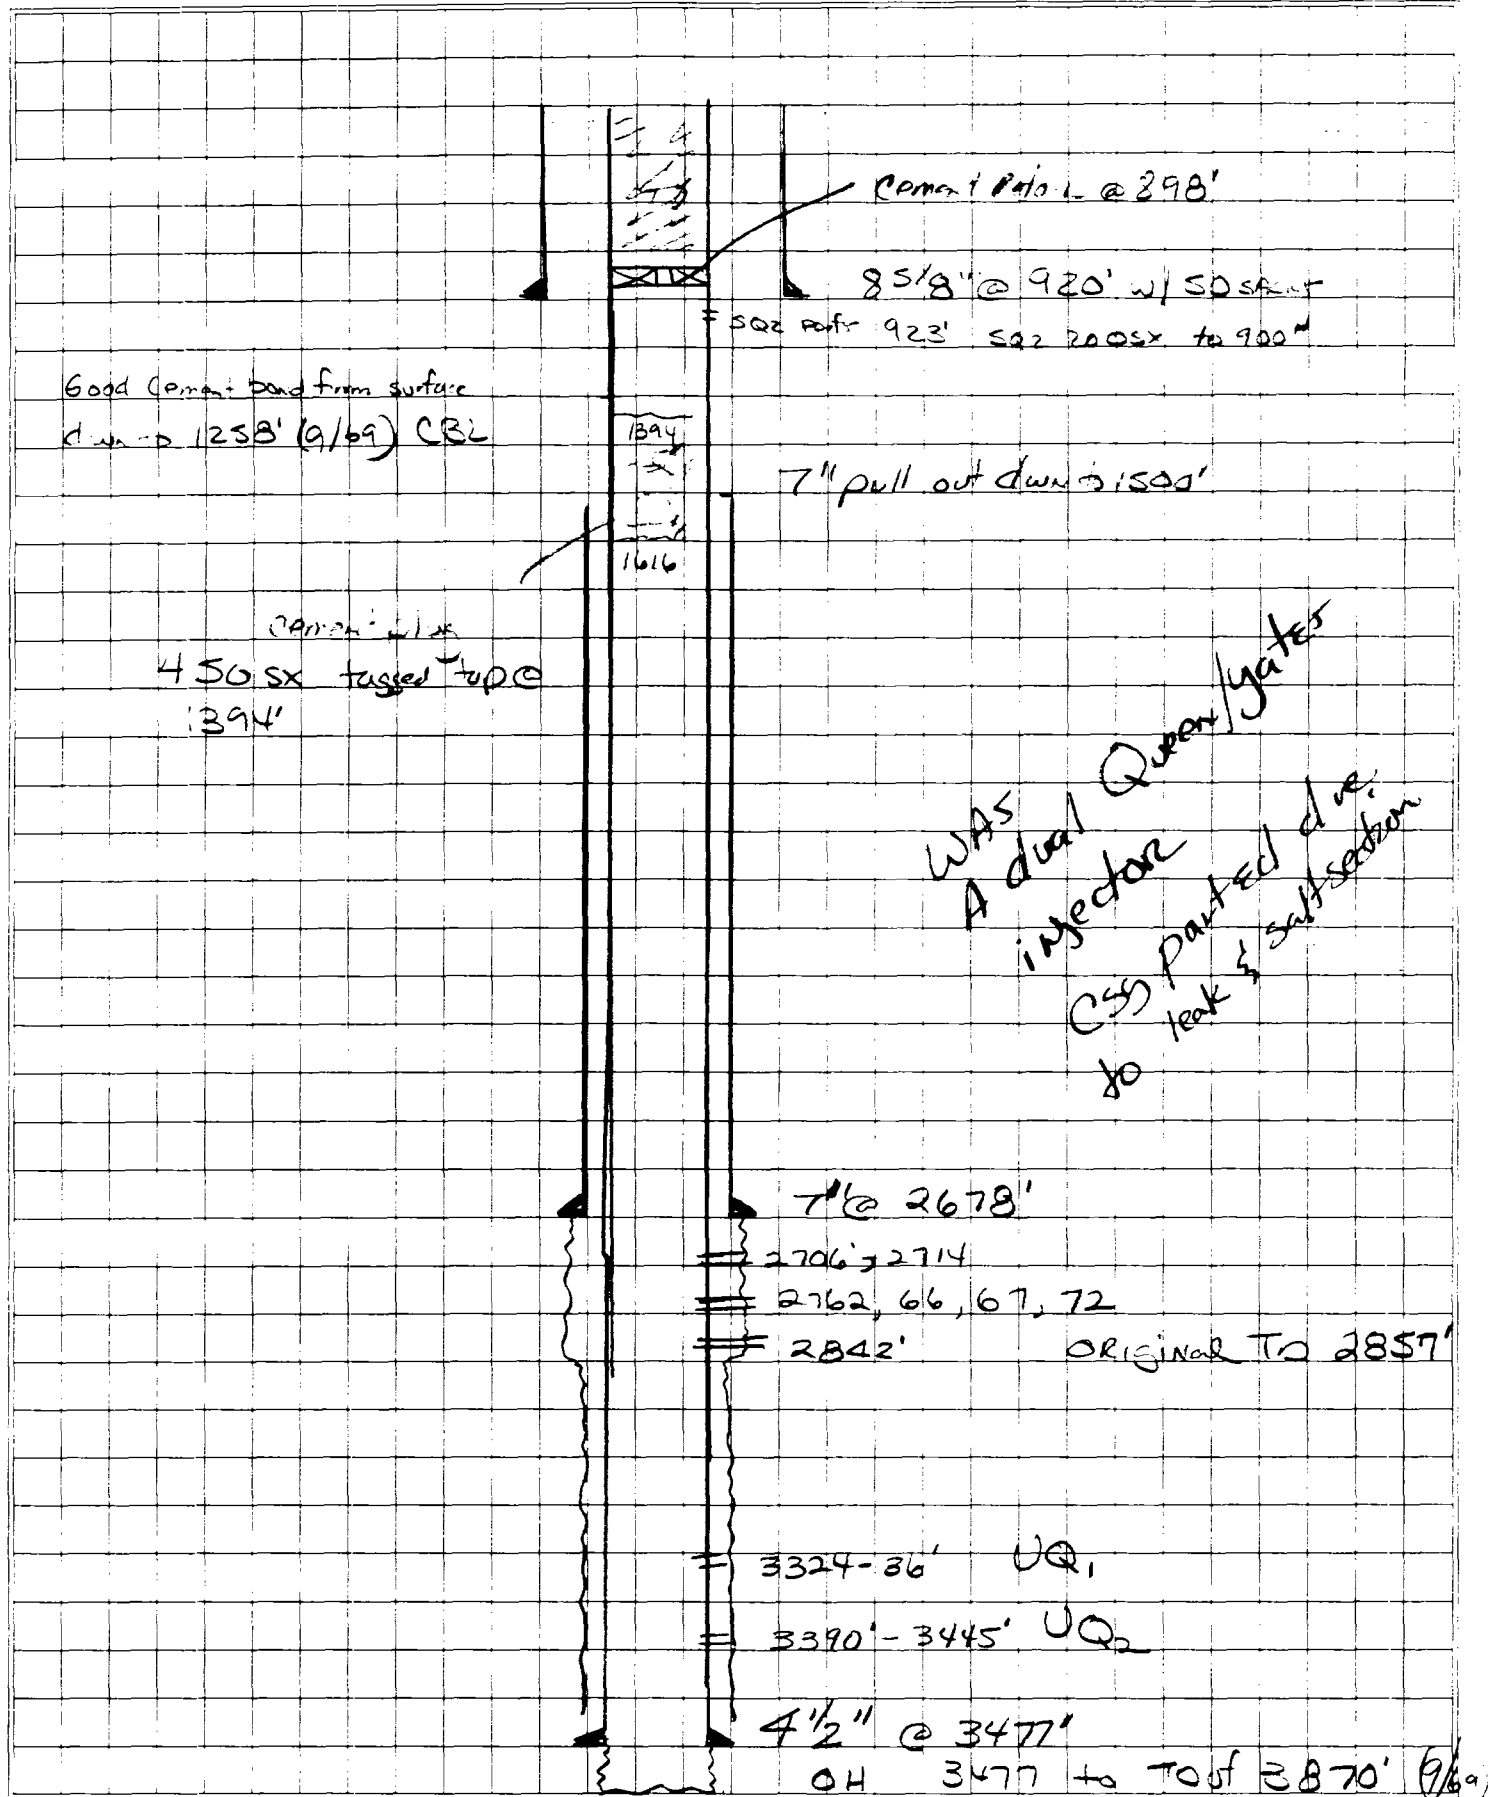 Cement @ 898'
8 5/8" @ 920' w/ 50
SQZ 923' SQZ 200sx to 900
Good Cement bond from surface
1258' (9/69) CBL
1394
7" pull out down 1500'
1616
cement
450 sx tagged top @
1394'
WAS
A dual Queen/Yates
injector
CSG parted due
to leak & salt section
7" @ 2678'
2706', 2714
2762, 66, 67, 72
2842' ORIGINAL TD 2857'
3324-36' UQ1
3390' - 3445' UQ2
4 1/2" @ 3477'
OH 3477 to TD of 3870' (9/69)